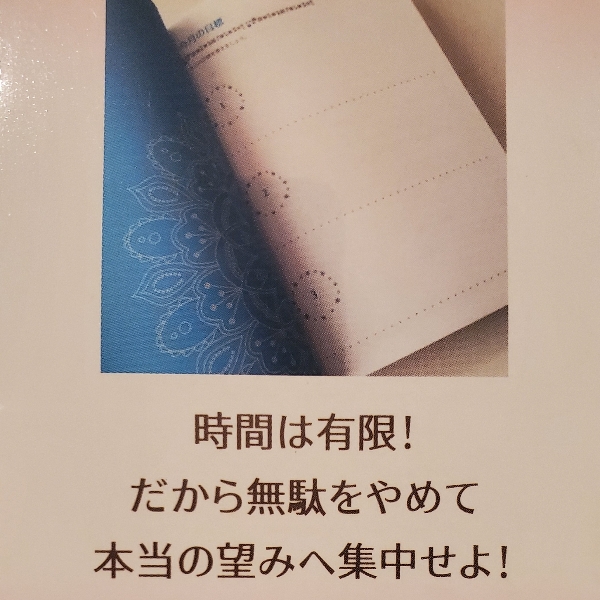 今月の目標
時間は有限!
だから無駄をやめて
本当の望みへ集中せよ!